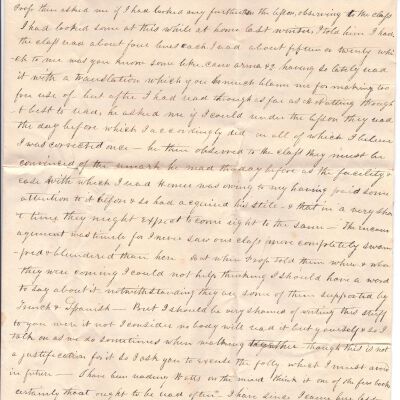 Prof then asked me if I had looked any further in the lesson, observing to the class
I had looked some at this while at home last winter I told him I had.
the class read about four lines each I read about fifteen or twenty whi-
ch to me was you know some like cano arma &c having so lately read
it with a translation which you so much blame me for making too
free use of. but after I had read though as far as he thought
best to read, he asked me if I could render the lesson they read
the day before which I accordingly did in all of which I believe
I was corrected once – he then observed to the class they must be
convinced of the remark he made the day before as the facility &
ease with which I read Homer was owing to my having paid some
attention to it before & so had acquired his stile & that in a very shor
t time they might expect to come right to the same – The encour
agement was timely for I never saw our class more completely swam
ped & blundered than here – but when Prof told them when & where
they were coming I could not help thinking I should have a word
to say about it notwithstanding they are some of them supported by
French & Spanish – But I should be very ashamed of writing this stuff
to you were it not I consider nobody will read it but yourself & so I
talk on as we do sometimes when walking together though this is not
a justification for it so I ask you to excuse the folly what I must avoid
in future – I have been reading Watts on the mind I think it one of the first books
certainly that ought to be read often – I have since I came here